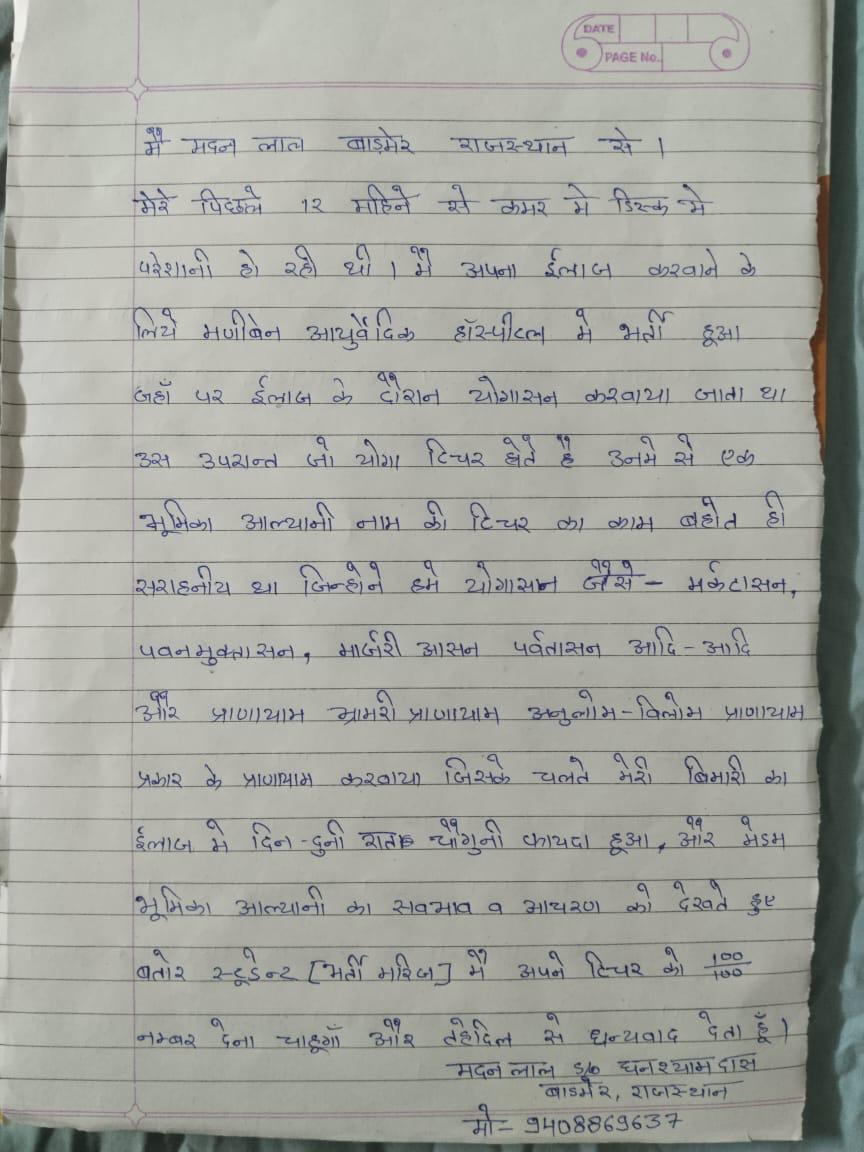 DATE
PAGE No.
मैं मदन लाल बाड़मेर राजस्थान से ।
मेरे पिछले 12 महिने से कमर मे डिस्क मे
परेशानी हो रही थी । मैं अपना ईलाज करवाने के
लिये मणीबेन आयुर्वेदिक हॉस्पीटल मे भर्ती हूआ
जहाँ पर ईलाज के दौरान योगासन करवाया जाता था
उस उपरान्त जो योगा टिचर होते है उनमे से एक
भूमिका आल्यानी नाम की टिचर का काम बहोत ही
सराहनीय था जिन्होने हमे योगासन जैसे - मर्कटासन,
पवनमुक्तासन, मार्जरी आसन पर्वतासन आदि - आदि
और प्राणायाम भ्रामरी प्राणायाम अनुलोम-विलोम प्राणायाम
प्रकार के प्राणायाम करवाया जिसके चलते मेरी बिमारी का
ईलाज मे दिन-दुनी रात चौगुनी फायदा हूआ, और मेडम
भूमिका आल्यानी का सवभाव व आचरण को देखते हुए
बतोर स्टूडेन्ट [भर्ती मरिज] मैं अपने टिचर को 100/100
नम्बर देना चाहूगाँ और तेहदिल से धन्यवाद देता हूँ।
मदन लाल S/o घनश्याम दास
बाडमेर, राजस्थान
मो- 9408869637